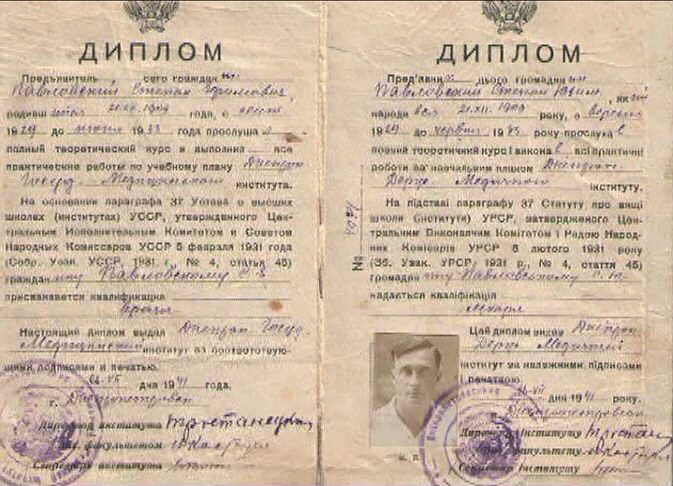 ДИПЛОМ
Предъявитель сего граждан
Павловский Степан
родивш 21.XII.1909 года, с
1929 до 1933 года прослушал
полный теоретический курс и выполнил все
практические работы по учебному плану Днепроп
Госуд. Медицинского института.
На основании параграфа 37 Устава о высших
школах (институтах) УССР, утвержденного Цен-
тральным Исполнительным Комитетом и Советом
Народных Комиссаров УССР 5 февраля 1931 года
(Собр. Узак. УССР, 1931 г., № 4, статья 45)
граждан Павловскому С.
присваивается квалификация
врача
Настоящий диплом выдал Днепроп Госуд.
Медицинский институт за соответствую-
щими подписями и печатью.
дня 1941 года.
г. Днепропетровск
Директор института
факультетом
Секретарь института
ДИПЛОМ
Пред'явник цього громадянин
Павловский Степан Юхим., як
народився 21.XII.1909 року, с вересня
1929 до червня 1933 року прослухав
повний теоретичний курс і виконав всі практичні
роботи за навчальним планом Дніпроп
Держ Медичного інституту.
На підставі параграфу 37 Статуту про вищі
школи (інститути) УРСР, затвердженого Цен-
тральним Виконавчим Комітетом і Радою Народ-
ник Комісарів УРСР 5 лютого 1931 року
(Зб. Узак. УРСР, 1931 р., № 4, стаття 45)
громадян Павловському С. Ю.
надається кваліфікація
лікаря
Цей диплом видав Дніпроп
Держ Медичний
інститут за належними підписами
і печаткою.
дня 1941 року.
Дніпропетровськ
Директор інституту
факультету
Секретар інституту
М. П.
№